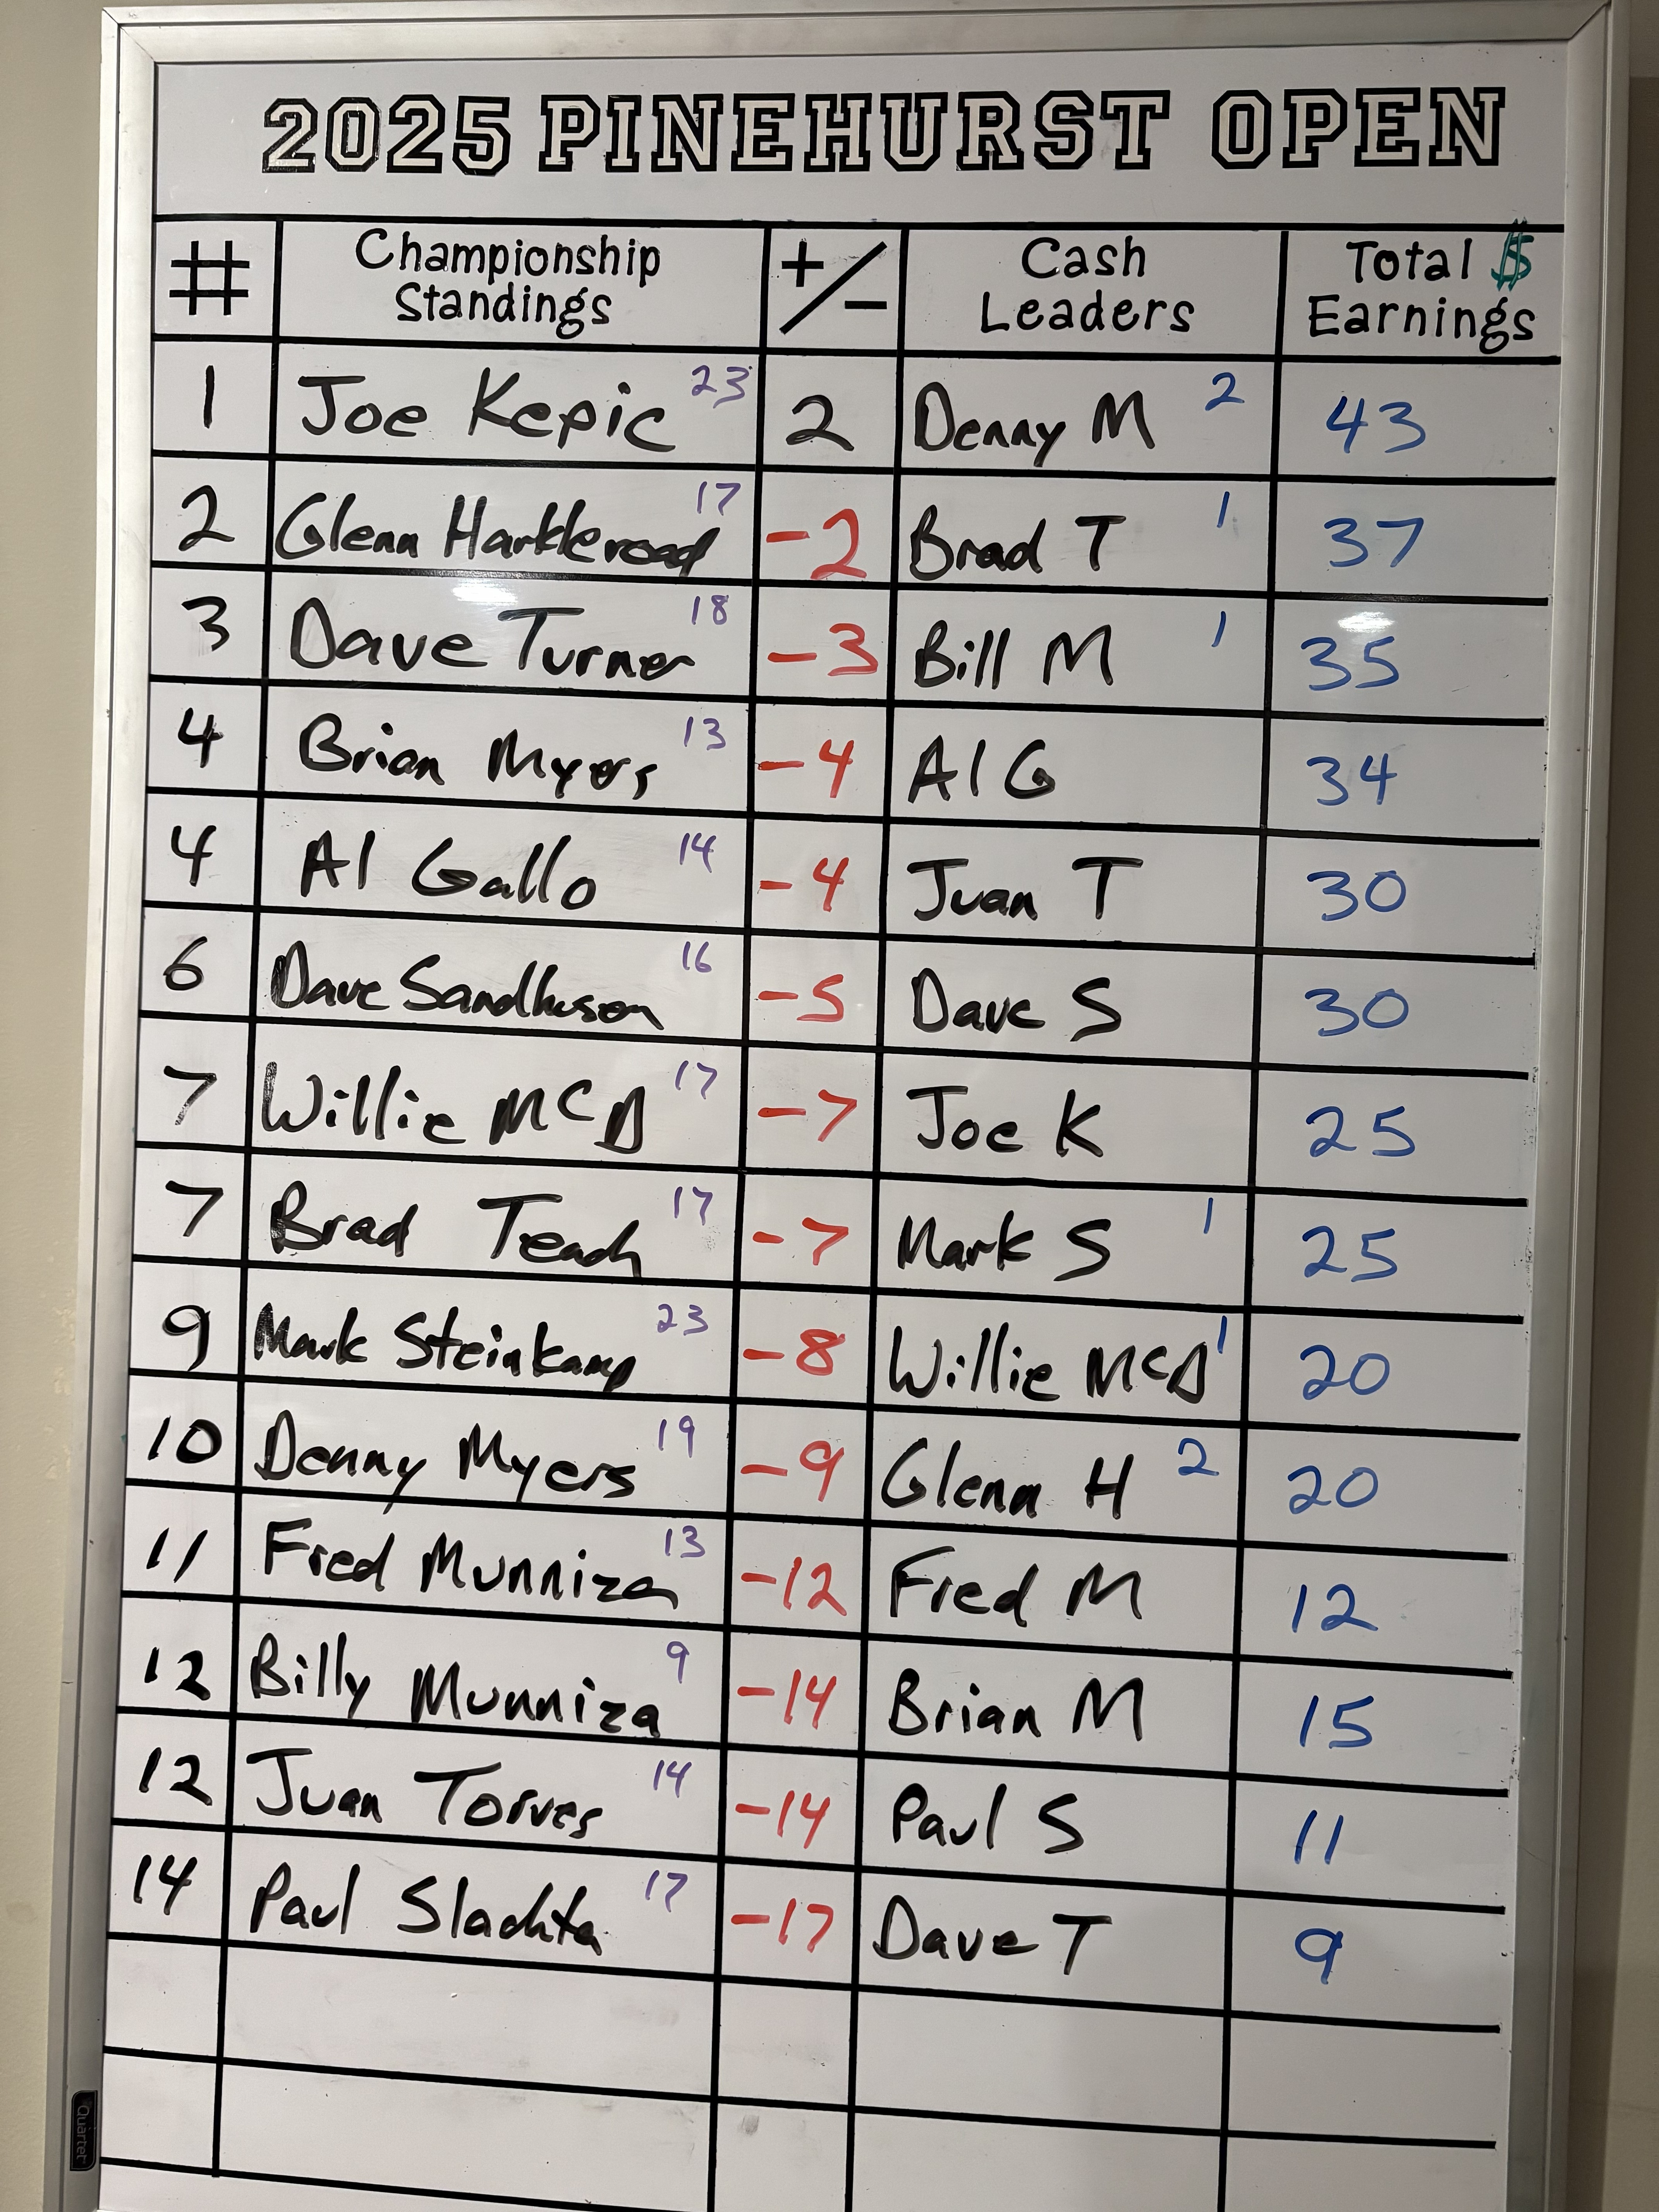 2025 PINEHURST OPEN
# Championship Standings +/- Cash Leaders Total $ Earnings
1 Joe Kepic 23 2 Denny M 2 43
2 Glenn Harkleroad 17 -2 Brad T 1 37
3 Dave Turner 18 -3 Bill M 1 35
4 Brian Myers 13 -4 Al G 34
4 Al Gallo 14 -4 Juan T 30
6 Dave Sandhuson 16 -5 Dave S 30
7 Willie McD 17 -7 Joe K 25
7 Brad Teach 17 -7 Mark S 1 25
9 Mark Steinkamp 23 -8 Willie McD 1 20
10 Denny Myers 19 -9 Glenn H 2 20
11 Fred Munniza 13 -12 Fred M 12
12 Billy Munniza 9 -14 Brian M 15
12 Juan Torres 14 -14 Paul S 11
14 Paul Slachta 17 -17 Dave T 9
Quartet